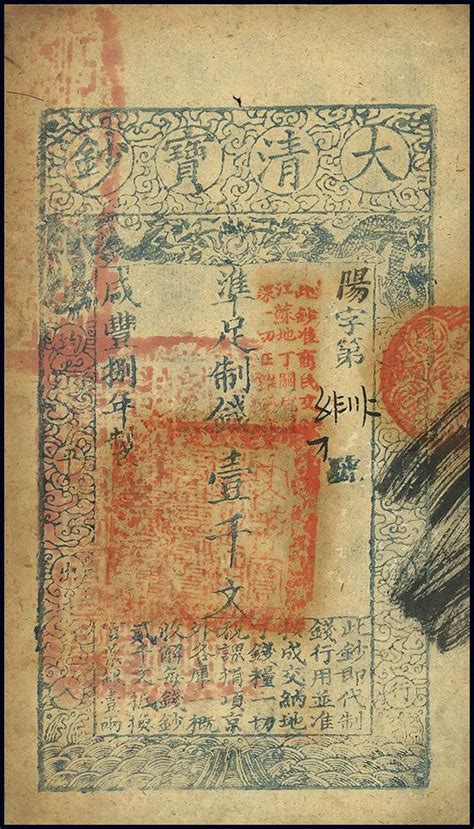 大清寶鈔
陽字第
號
此鈔准商民交
江蘇地丁關
準足制錢壹千文
咸豐捌年製
均平出入
此鈔即代制
錢行用並准
按成交納地
丁錢糧一切
稅課捐項京
外各庫一概
收解每錢鈔
貳千文抵換
官票銀壹兩